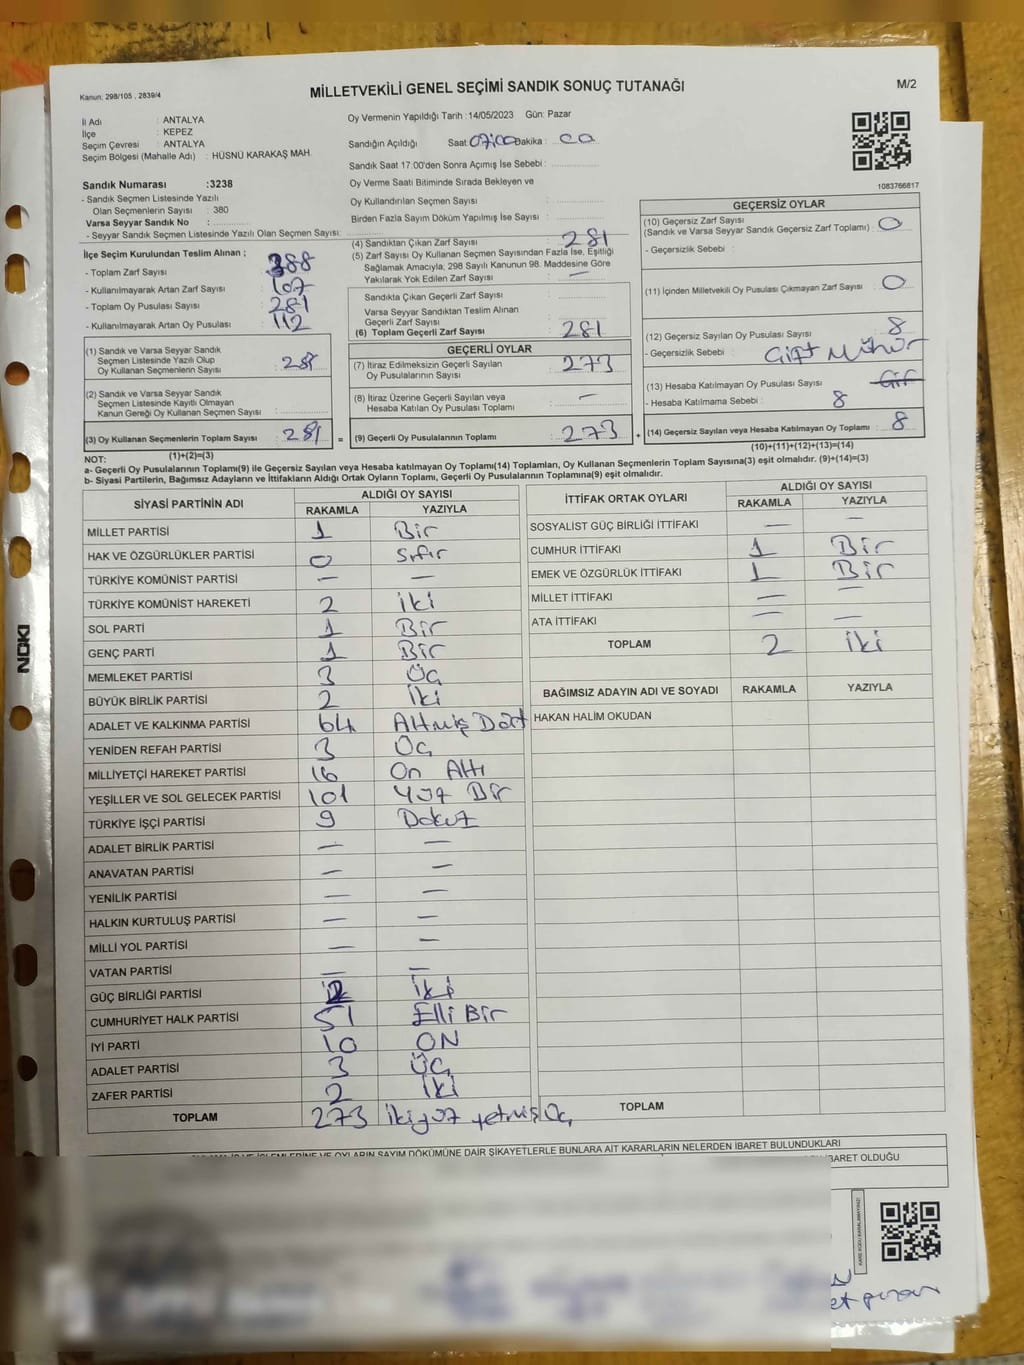 Kanun: 298/105 , 2839/4
MİLLETVEKİLİ GENEL SEÇİMİ SANDIK SONUÇ TUTANAĞI
M/2
İl Adı : ANTALYA
İlçe : KEPEZ
Seçim Çevresi : ANTALYA
Seçim Bölgesi (Mahalle Adı) : HÜSNÜ KARAKAŞ MAH.
Oy Vermenin Yapıldığı Tarih :14/05/2023 Gün: Pazar
Sandığın Açıldığı Saat 07:00 Dakika :
Sandık Saat 17.00'den Sonra Açımış İse Sebebi :
Oy Verme Saati Bitiminde Sırada Bekleyen ve
Oy Kullandırılan Seçmen Sayısı :
Birden Fazla Sayım Döküm Yapılmış İse Sayısı :
1083766817
Sandık Numarası :3238
- Sandık Seçmen Listesinde Yazılı
Olan Seçmenlerin Sayısı : 380
Varsa Seyyar Sandık No :
- Seyyar Sandık Seçmen Listesinde Yazılı Olan Seçmen Sayısı:
İlçe Seçim Kurulundan Teslim Alınan ;
- Toplam Zarf Sayısı : 388
- Kullanılmayarak Artan Zarf Sayısı : 107
- Toplam Oy Pusulası Sayısı : 281
- Kullanılmayarak Artan Oy Pusulası : 112
(1) Sandık ve Varsa Seyyar Sandık
Seçmen Listesinde Yazılı Olup
Oy Kullanan Seçmenlerin Sayısı : 281
(2) Sandık ve Varsa Seyyar Sandık
Seçmen Listesinde Kayıtlı Olmayan
Kanun Gereği Oy Kullanan Seçmen Sayısı :
(3) Oy Kullanan Seçmenlerin Toplam Sayısı : 281 =
(1)+(2)=(3)
(4) Sandıktan Çıkan Zarf Sayısı : 281
(5) Zarf Sayısı Oy Kullanan Seçmen Sayısından Fazla İse, Eşitliği
Sağlamak Amacıyla; 298 Sayılı Kanunun 98. Maddesine Göre
Yakılarak Yok Edilen Zarf Sayısı : —
Sandıkta Çıkan Geçerli Zarf Sayısı :
Varsa Seyyar Sandıktan Teslim Alınan
Geçerli Zarf Sayısı :
(6) Toplam Geçerli Zarf Sayısı : 281
GEÇERLİ OYLAR
(7) İtiraz Edilmeksizin Geçerli Sayılan
Oy Pusulalarının Sayısı : 273
(8) İtiraz Üzerine Geçerli Sayılan veya
Hesaba Katılan Oy Pusulası Toplamı : —
(9) Geçerli Oy Pusulalarının Toplamı : 273 +
GEÇERSİZ OYLAR
(10) Geçersiz Zarf Sayısı
(Sandık ve Varsa Seyyar Sandık Geçersiz Zarf Toplamı) : 0
- Geçersizlik Sebebi :
(11) İçinden Milletvekili Oy Pusulası Çıkmayan Zarf Sayısı : 0
(12) Geçersiz Sayılan Oy Pusulası Sayısı : 8
- Geçersizlik Sebebi : Çift Mühür
(13) Hesaba Katılmayan Oy Pusulası Sayısı :
- Hesaba Katılmama Sebebi : 8
(14) Geçersiz Sayılan veya Hesaba Katılmayan Oy Toplamı : 8
(10)+(11)+(12)+(13)=(14)
NOT:
a- Geçerli Oy Pusulalarının Toplamı(9) ile Geçersiz Sayılan veya Hesaba katılmayan Oy Toplamı(14) Toplamları, Oy Kullanan Seçmenlerin Toplam Sayısına(3) eşit olmalıdır. (9)+(14)=(3)
b- Siyasi Partilerin, Bağımsız Adayların ve İttifakların Aldığı Ortak Oyların Toplamı, Geçerli Oy Pusulalarının Toplamına(9) eşit olmalıdır.
SİYASİ PARTİNİN ADI ALDIĞI OY SAYISI
RAKAMLA YAZIYLA
MİLLET PARTİSİ 1 Bir
HAK VE ÖZGÜRLÜKLER PARTİSİ 0 Sıfır
TÜRKİYE KOMÜNİST PARTİSİ — —
TÜRKİYE KOMÜNİST HAREKETİ 2 iki
SOL PARTİ 1 Bir
GENÇ PARTİ 1 Bir
MEMLEKET PARTİSİ 3 Üç
BÜYÜK BİRLİK PARTİSİ 2 İki
ADALET VE KALKINMA PARTİSİ 64 Altmış Dört
YENİDEN REFAH PARTİSİ 3 Üç
MİLLİYETÇİ HAREKET PARTİSİ 16 On Altı
YEŞİLLER VE SOL GELECEK PARTİSİ 101 Yüz Bir
TÜRKİYE İŞÇİ PARTİSİ 9 Dokuz
ADALET BİRLİK PARTİSİ — —
ANAVATAN PARTİSİ — —
YENİLİK PARTİSİ — —
HALKIN KURTULUŞ PARTİSİ — —
MİLLİ YOL PARTİSİ — —
VATAN PARTİSİ — —
GÜÇ BİRLİĞİ PARTİSİ 2 İki
CUMHURİYET HALK PARTİSİ 51 Elli Bir
İYİ PARTİ 10 ON
ADALET PARTİSİ 3 ÜÇ
ZAFER PARTİSİ 2 İki
TOPLAM 273 ikiyüz yetmiş Üç
İTTİFAK ORTAK OYLARI ALDIĞI OY SAYISI
RAKAMLA YAZIYLA
SOSYALİST GÜÇ BİRLİĞİ İTTİFAKI — —
CUMHUR İTTİFAKI 1 Bir
EMEK VE ÖZGÜRLÜK İTTİFAKI 1 Bir
MİLLET İTTİFAKI — —
ATA İTTİFAKI — —
TOPLAM 2 iki
BAĞIMSIZ ADAYIN ADI VE SOYADI RAKAMLA YAZIYLA
HAKAN HALİM OKUDAN
TOPLAM
OYLARIN SAYIM DÖKÜMÜNE DAİR ŞİKAYETLERLE BUNLARA AİT KARARLARIN NELERDEN İBARET BULUNDUKLARI
İBARET OLDUĞU
NOKI